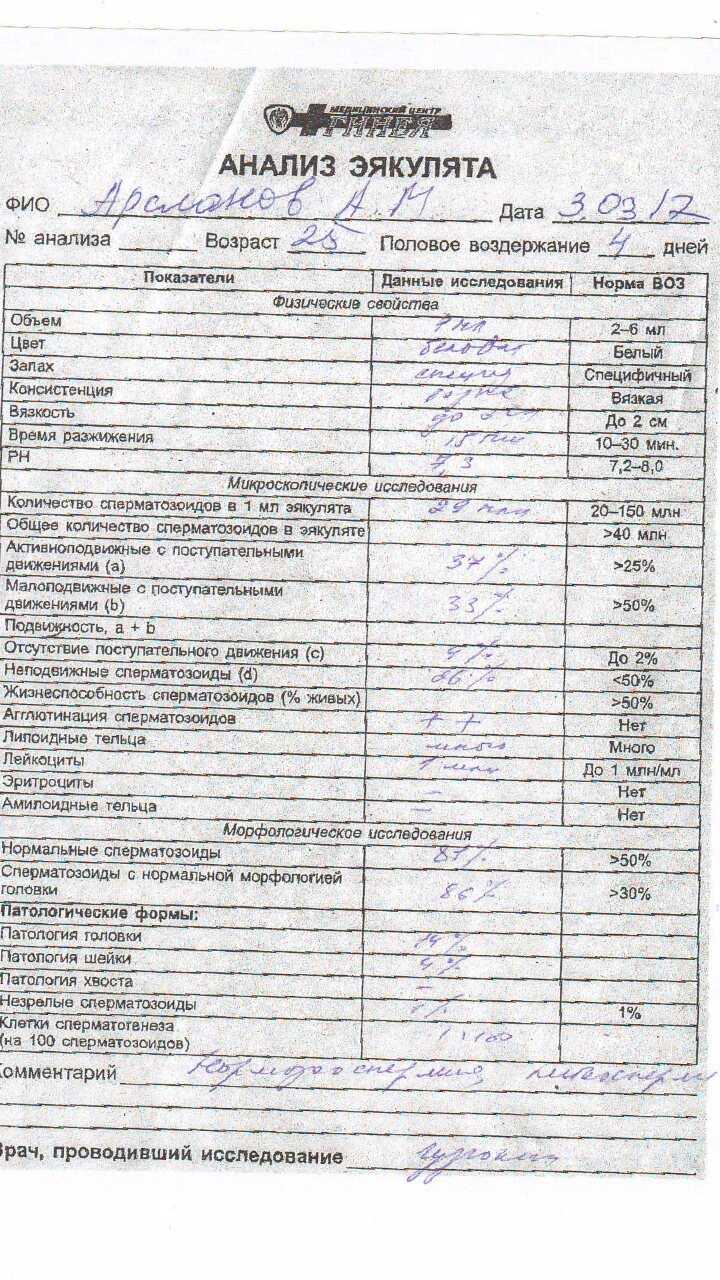 МЕДИЦИНСКИЙ ЦЕНТР
ГИНЕЯ
АНАЛИЗ ЭЯКУЛЯТА
ФИО Арсланов А М Дата 3.03 17
№ анализа Возраст 25 Половое воздержание 4 дней
Показатели Данные исследования Норма ВОЗ
Физические свойства
Объем 2–6 мл
Цвет Белый
Запах Специфичный
Консистенция Вязкая
Вязкость До 2 см
Время разжижения 15 мин 10–30 мин.
РН 7,3 7,2–8,0
Микроскопические исследования
Количество сперматозоидов в 1 мл эякулята 29 млн 20–150 млн
Общее количество сперматозоидов в эякуляте >40 млн
Активноподвижные с поступательными
движениями (а) 37% >25%
Малоподвижные с поступательными
движениями (b) 33% >50%
Подвижность, а + b
Отсутствие поступательного движения (с) 4% До 2%
Неподвижные сперматозоиды (d) 26% <50%
Жизнеспособность сперматозоидов (% живых) >50%
Агглютинация сперматозоидов + + Нет
Липоидные тельца много Много
Лейкоциты 1 млн До 1 млн/мл
Эритроциты – Нет
Амилоидные тельца – Нет
Морфологическое исследования
Нормальные сперматозоиды 81% >50%
Сперматозоиды с нормальной морфологией
головки 86% >30%
Патологические формы:
Патология головки 14%
Патология шейки 4%
Патология хвоста –
Незрелые сперматозоиды 1% 1%
Клетки сперматогенеза
(на 100 сперматозоидов) 1:100
Комментарий Нормозооспермия,
Врач, проводивший исследование